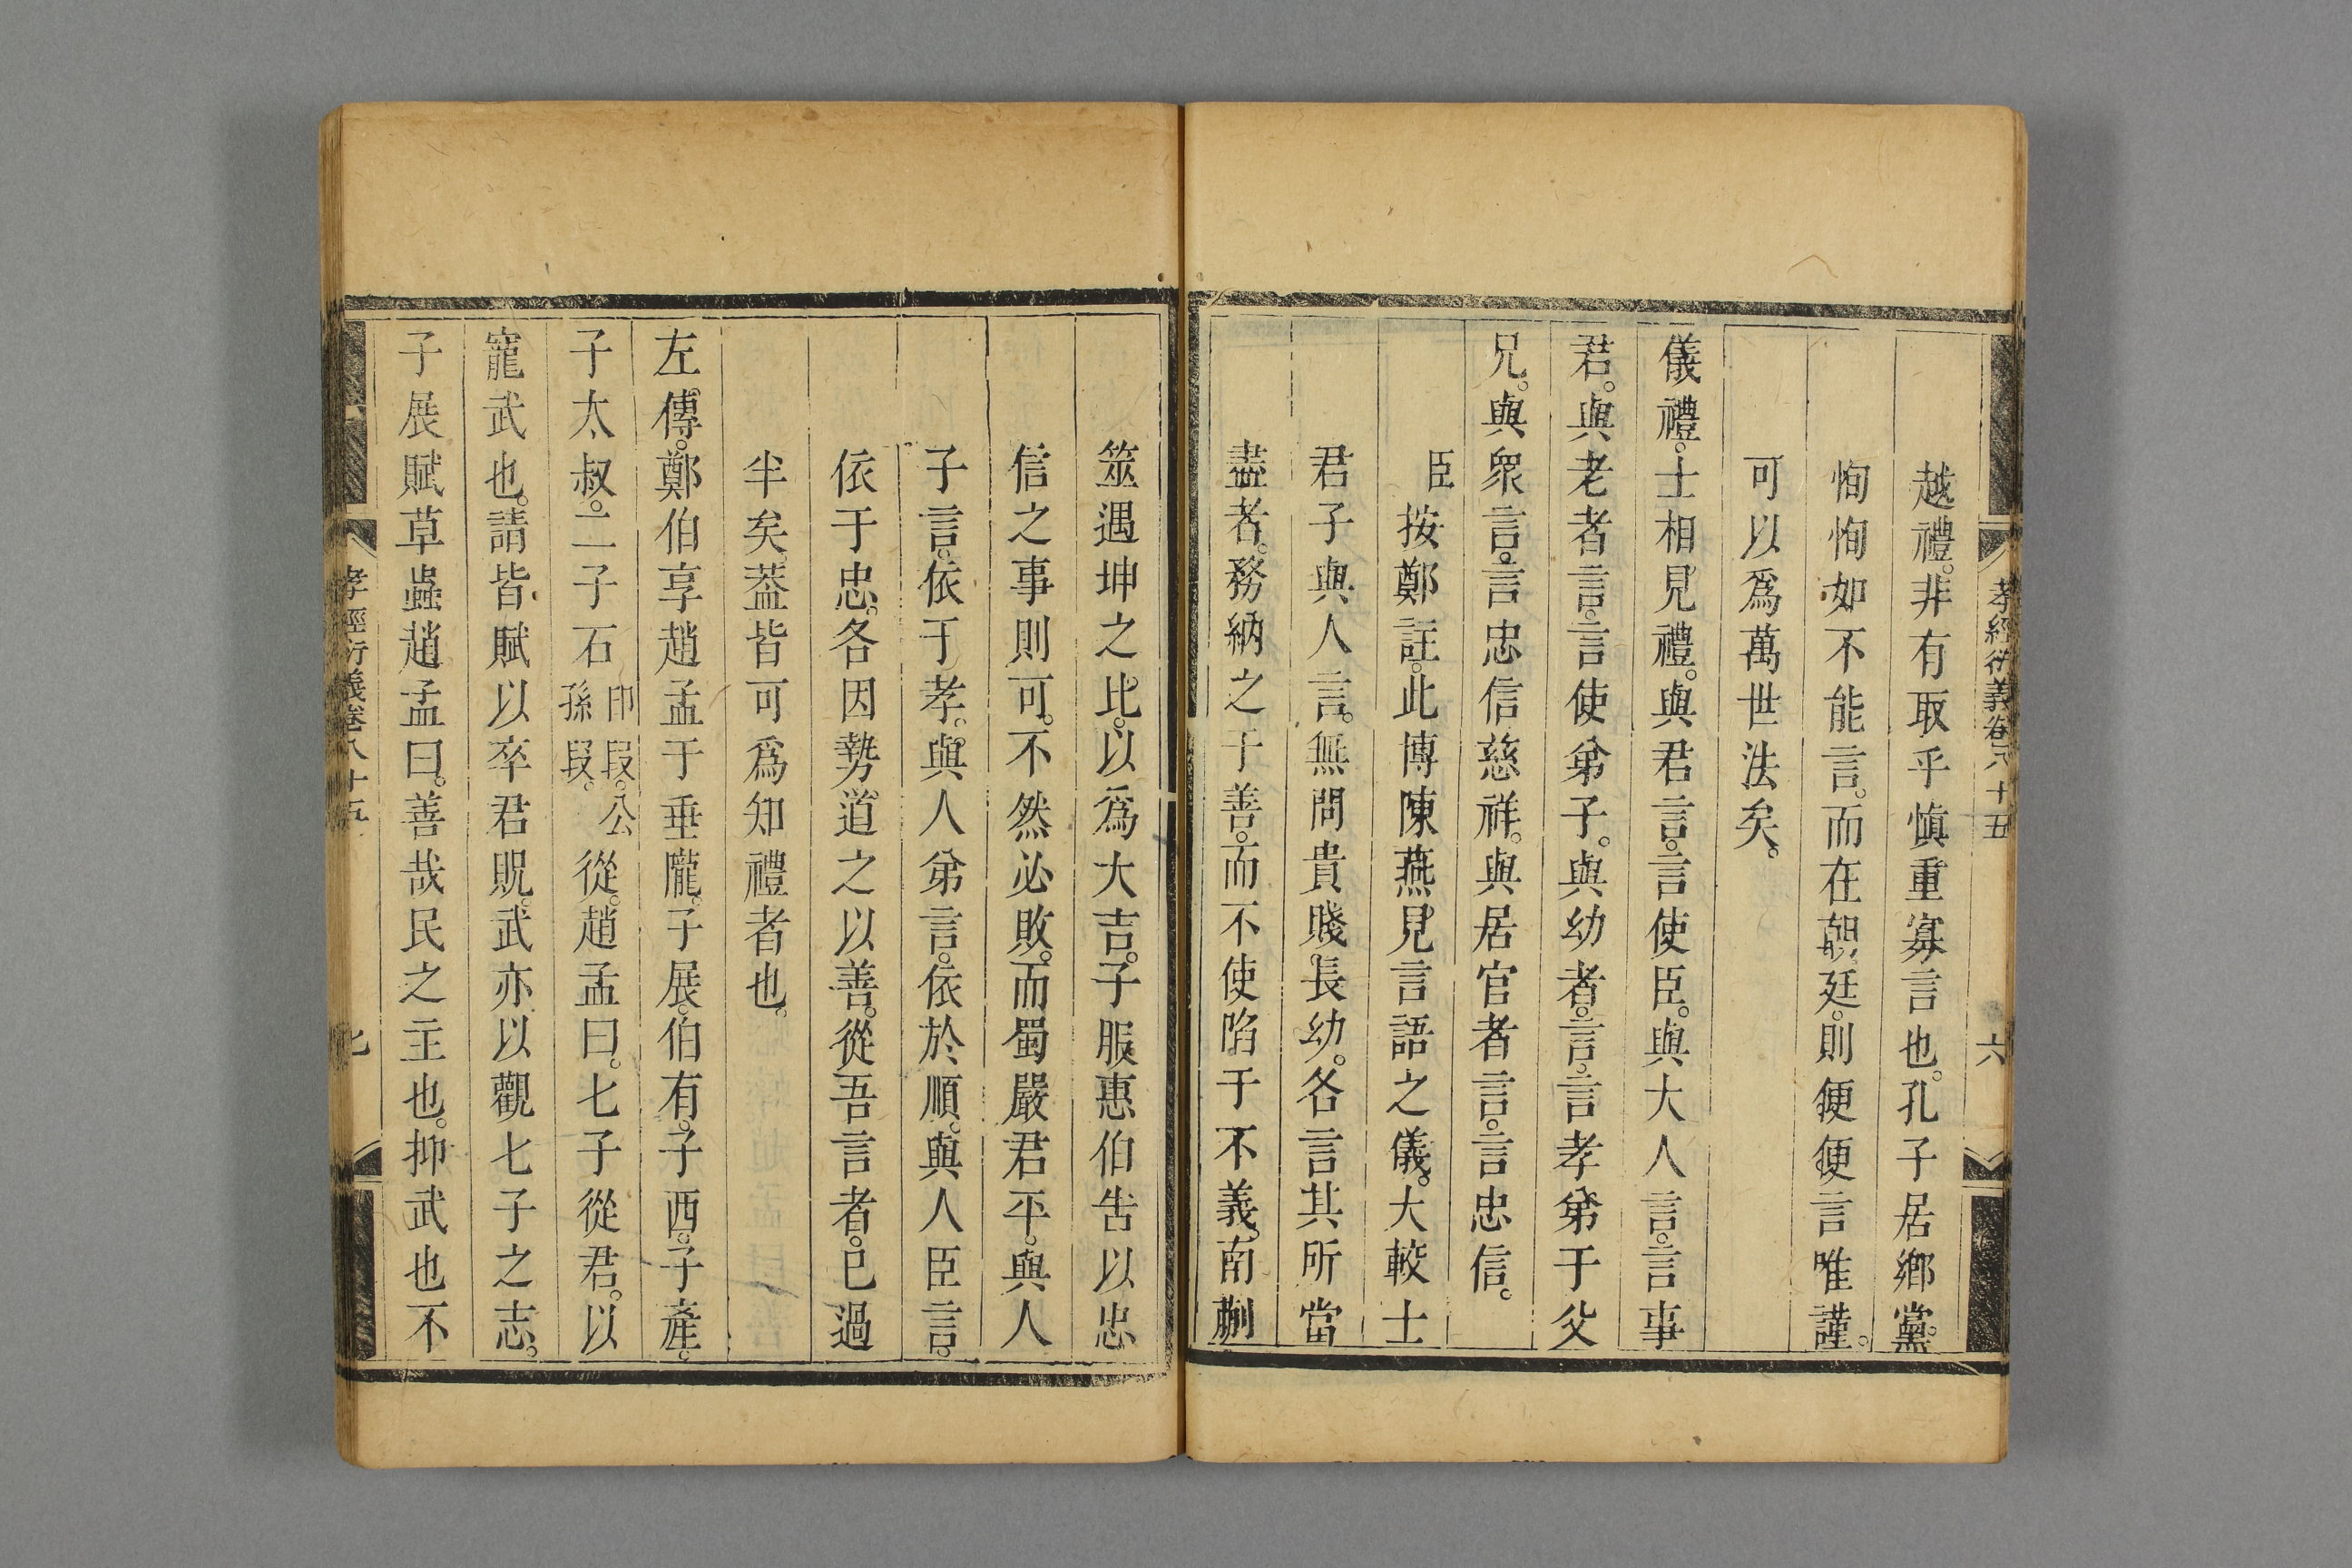 孝經衍義卷八十五
六
越禮。非有取乎慎重寡言也。孔子居鄉黨。
恂恂如不能言。而在朝廷。則便便言唯謹。
可以爲萬世法矣。
儀禮。士相見禮。與君言。言使臣。與大人言。言事
君。與老者言。言使弟子。與幼者言。言孝弟于父
兄。與眾言。言忠信慈祥。與居官者言。言忠信。
臣按鄭註。此博陳燕見言語之儀。大較士
君子與人言。無問貴賤。長幼。各言其所當
盡者。務納之于善。而不使陷于不義。南蒯
筮遇坤之比。以爲大吉。子服惠伯告以忠
信之事則可。不然必敗。而蜀嚴君平。與人
子言。依于孝。與人弟言。依於順。與人臣言。
依于忠。各因勢道之以善。從吾言者。已過
半矣。葢皆可爲知禮者也。
左傳。鄭伯享趙孟于垂隴。子展。伯有。子西。子產。
子太叔。二子石印叚。公孫叚。從。趙孟曰。七子從君。以
寵武也。請皆賦以卒君貺。武亦以觀七子之志。
子展賦草蟲趙孟曰。善哉民之主也。抑武也不
孝經衍義卷八十五
七